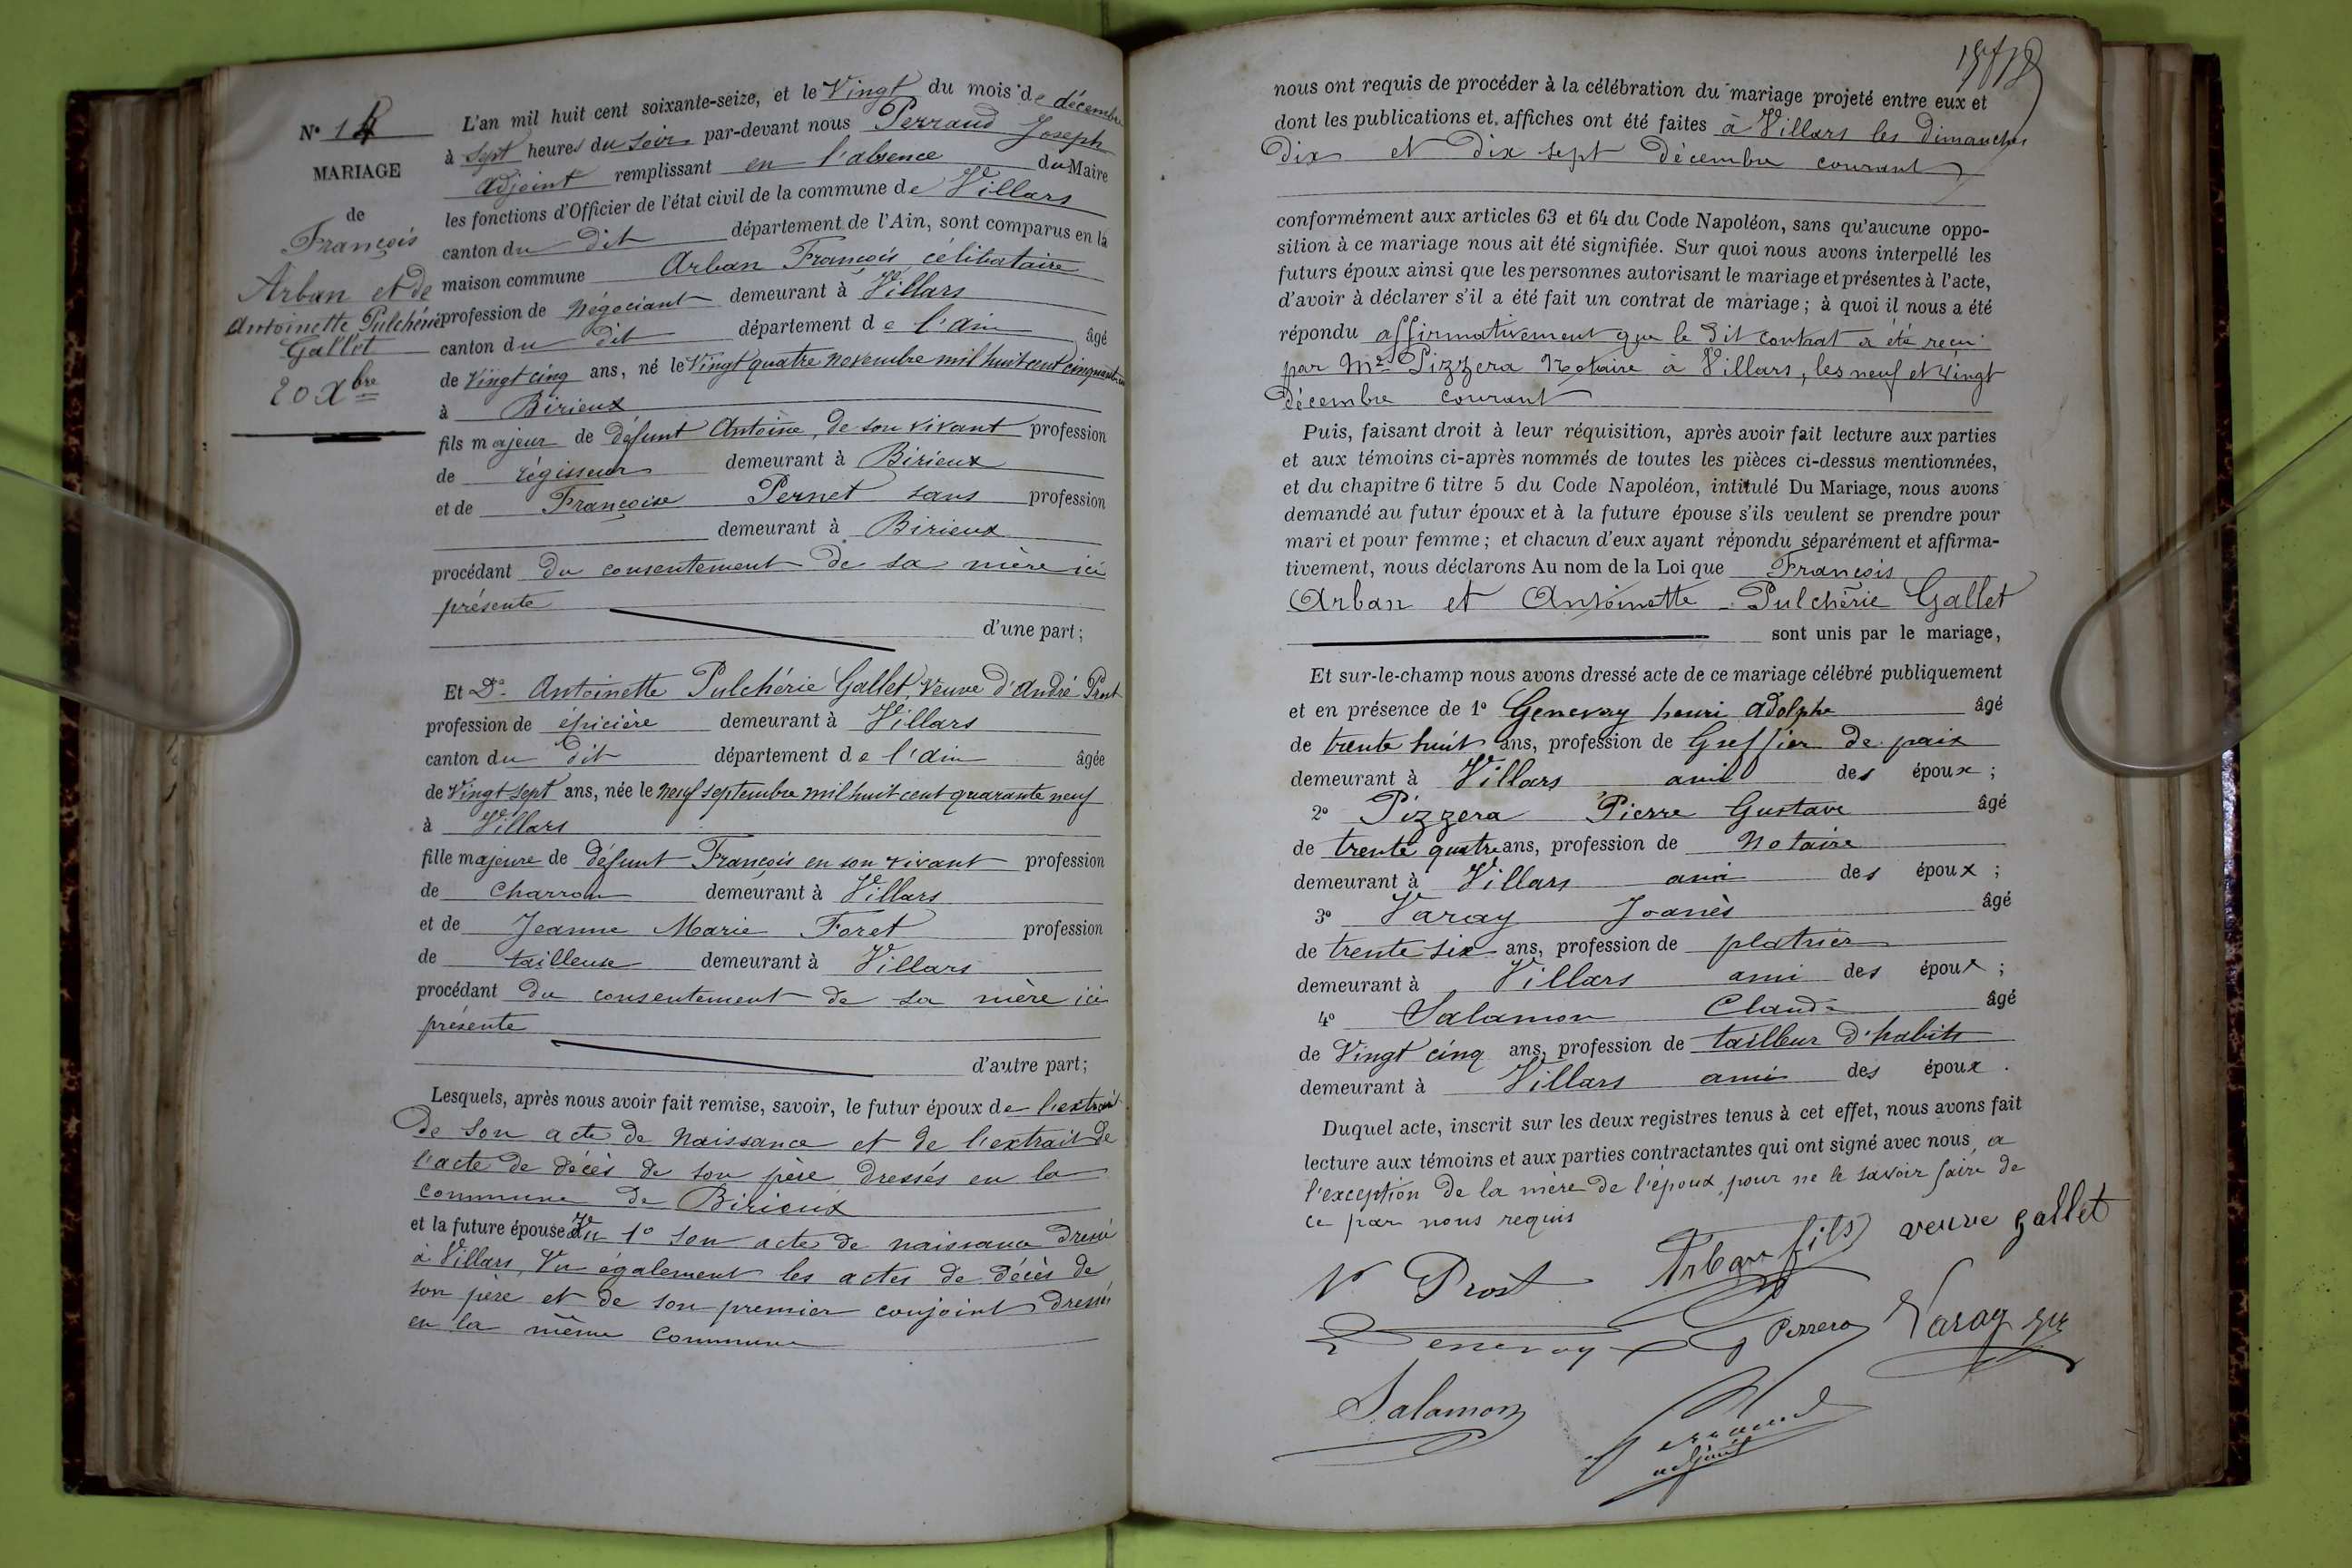 N° 14
MARIAGE
de
François
Arban et de
Antoinette Pulchérie
Gallet
20 Xbre
L'an mil huit cent soixante-seize, et le Vingt du mois de décembre
à sept heures du soir par-devant nous Perraud Joseph
adjoint remplissant en l'absence du Maire
les fonctions d'Officier de l'état civil de la commune de Villars
canton du dit département de l'Ain, sont comparus en la
maison commune Arban François célibataire
profession de négociant demeurant à Villars
canton du dit département de l'ain âgé
de Vingt cinq ans, né le Vingt quatre novembre mil huit cent cinquante un
à Birieux
fils majeur de défunt Antoine, de son vivant profession
de régisseur demeurant à Birieux
et de Françoise Pernet sans profession
demeurant à Birieux
procédant du consentement de sa mère ici
présente
d'une part;
Et De Antoinette Pulchérie Gallet, veuve d'André Prost
profession de épicière demeurant à Villars
canton du dit département de l'ain âgée
de Vingt sept ans, née le neuf septembre mil huit cent quarante neuf
à Villars
fille majeure de défunt François en son vivant profession
de charron demeurant à Villars
et de Jeanne Marie Foret profession
de tailleuse demeurant à Villars
procédant du consentement de sa mère ici
présente
d'autre part;
Lesquels, après nous avoir fait remise, savoir, le futur époux de l'extrait
de son acte de naissance et de l'extrait de
l'acte de décès de son père dressés en la
commune de Birieux
et la future épouse Vu 1° son acte de naissance dressé
à Villars, Vu également les actes de décès de
son père et de son premier conjoint dressés
en la même commune
nous ont requis de procéder à la célébration du mariage projeté entre eux et
dont les publications et affiches ont été faites à Villars les dimanches
dix et dix sept décembre courant
conformément aux articles 63 et 64 du Code Napoléon, sans qu'aucune oppo-
sition à ce mariage nous ait été signifiée. Sur quoi nous avons interpellé les
futurs époux ainsi que les personnes autorisant le mariage et présentes à l'acte,
d'avoir à déclarer s'il a été fait un contrat de mariage; à quoi il nous a été
répondu affirmativement que le dit contrat a été reçu
par Me Pizzera Notaire à Villars, les neuf et vingt
décembre courant
Puis, faisant droit à leur réquisition, après avoir fait lecture aux parties
et aux témoins ci-après nommés de toutes les pièces ci-dessus mentionnées,
et du chapitre 6 titre 5 du Code Napoléon, intitulé Du Mariage, nous avons
demandé au futur époux et à la future épouse s'ils veulent se prendre pour
mari et pour femme; et chacun d'eux ayant répondu séparément et affirma-
tivement, nous déclarons Au nom de la Loi que François
Arban et Antoinette Pulchérie Gallet
sont unis par le mariage,
Et sur-le-champ nous avons dressé acte de ce mariage célébré publiquement
et en présence de 1° Genevay henri adolphe âgé
de trente huit ans, profession de Greffier de paix
demeurant à Villars ami des époux;
2° Pizzera Pierre Gustave âgé
de trente quatre ans, profession de Notaire
demeurant à Villars ami des époux;
3° Varay Joanès âgé
de trente six ans, profession de platrier
demeurant à Villars ami des époux;
4° Salamon Claude âgé
de Vingt cinq ans, profession de tailleur d'habits
demeurant à Villars ami des époux.
Duquel acte, inscrit sur les deux registres tenus à cet effet, nous avons fait
lecture aux témoins et aux parties contractantes qui ont signé avec nous a
l'exception de la mère de l'époux pour ne le savoir faire de
ce par nous requis
Arban fils veuve gallet
V Prost
Genevay G Pizzera Varay
Salamon Perraud
adjoint